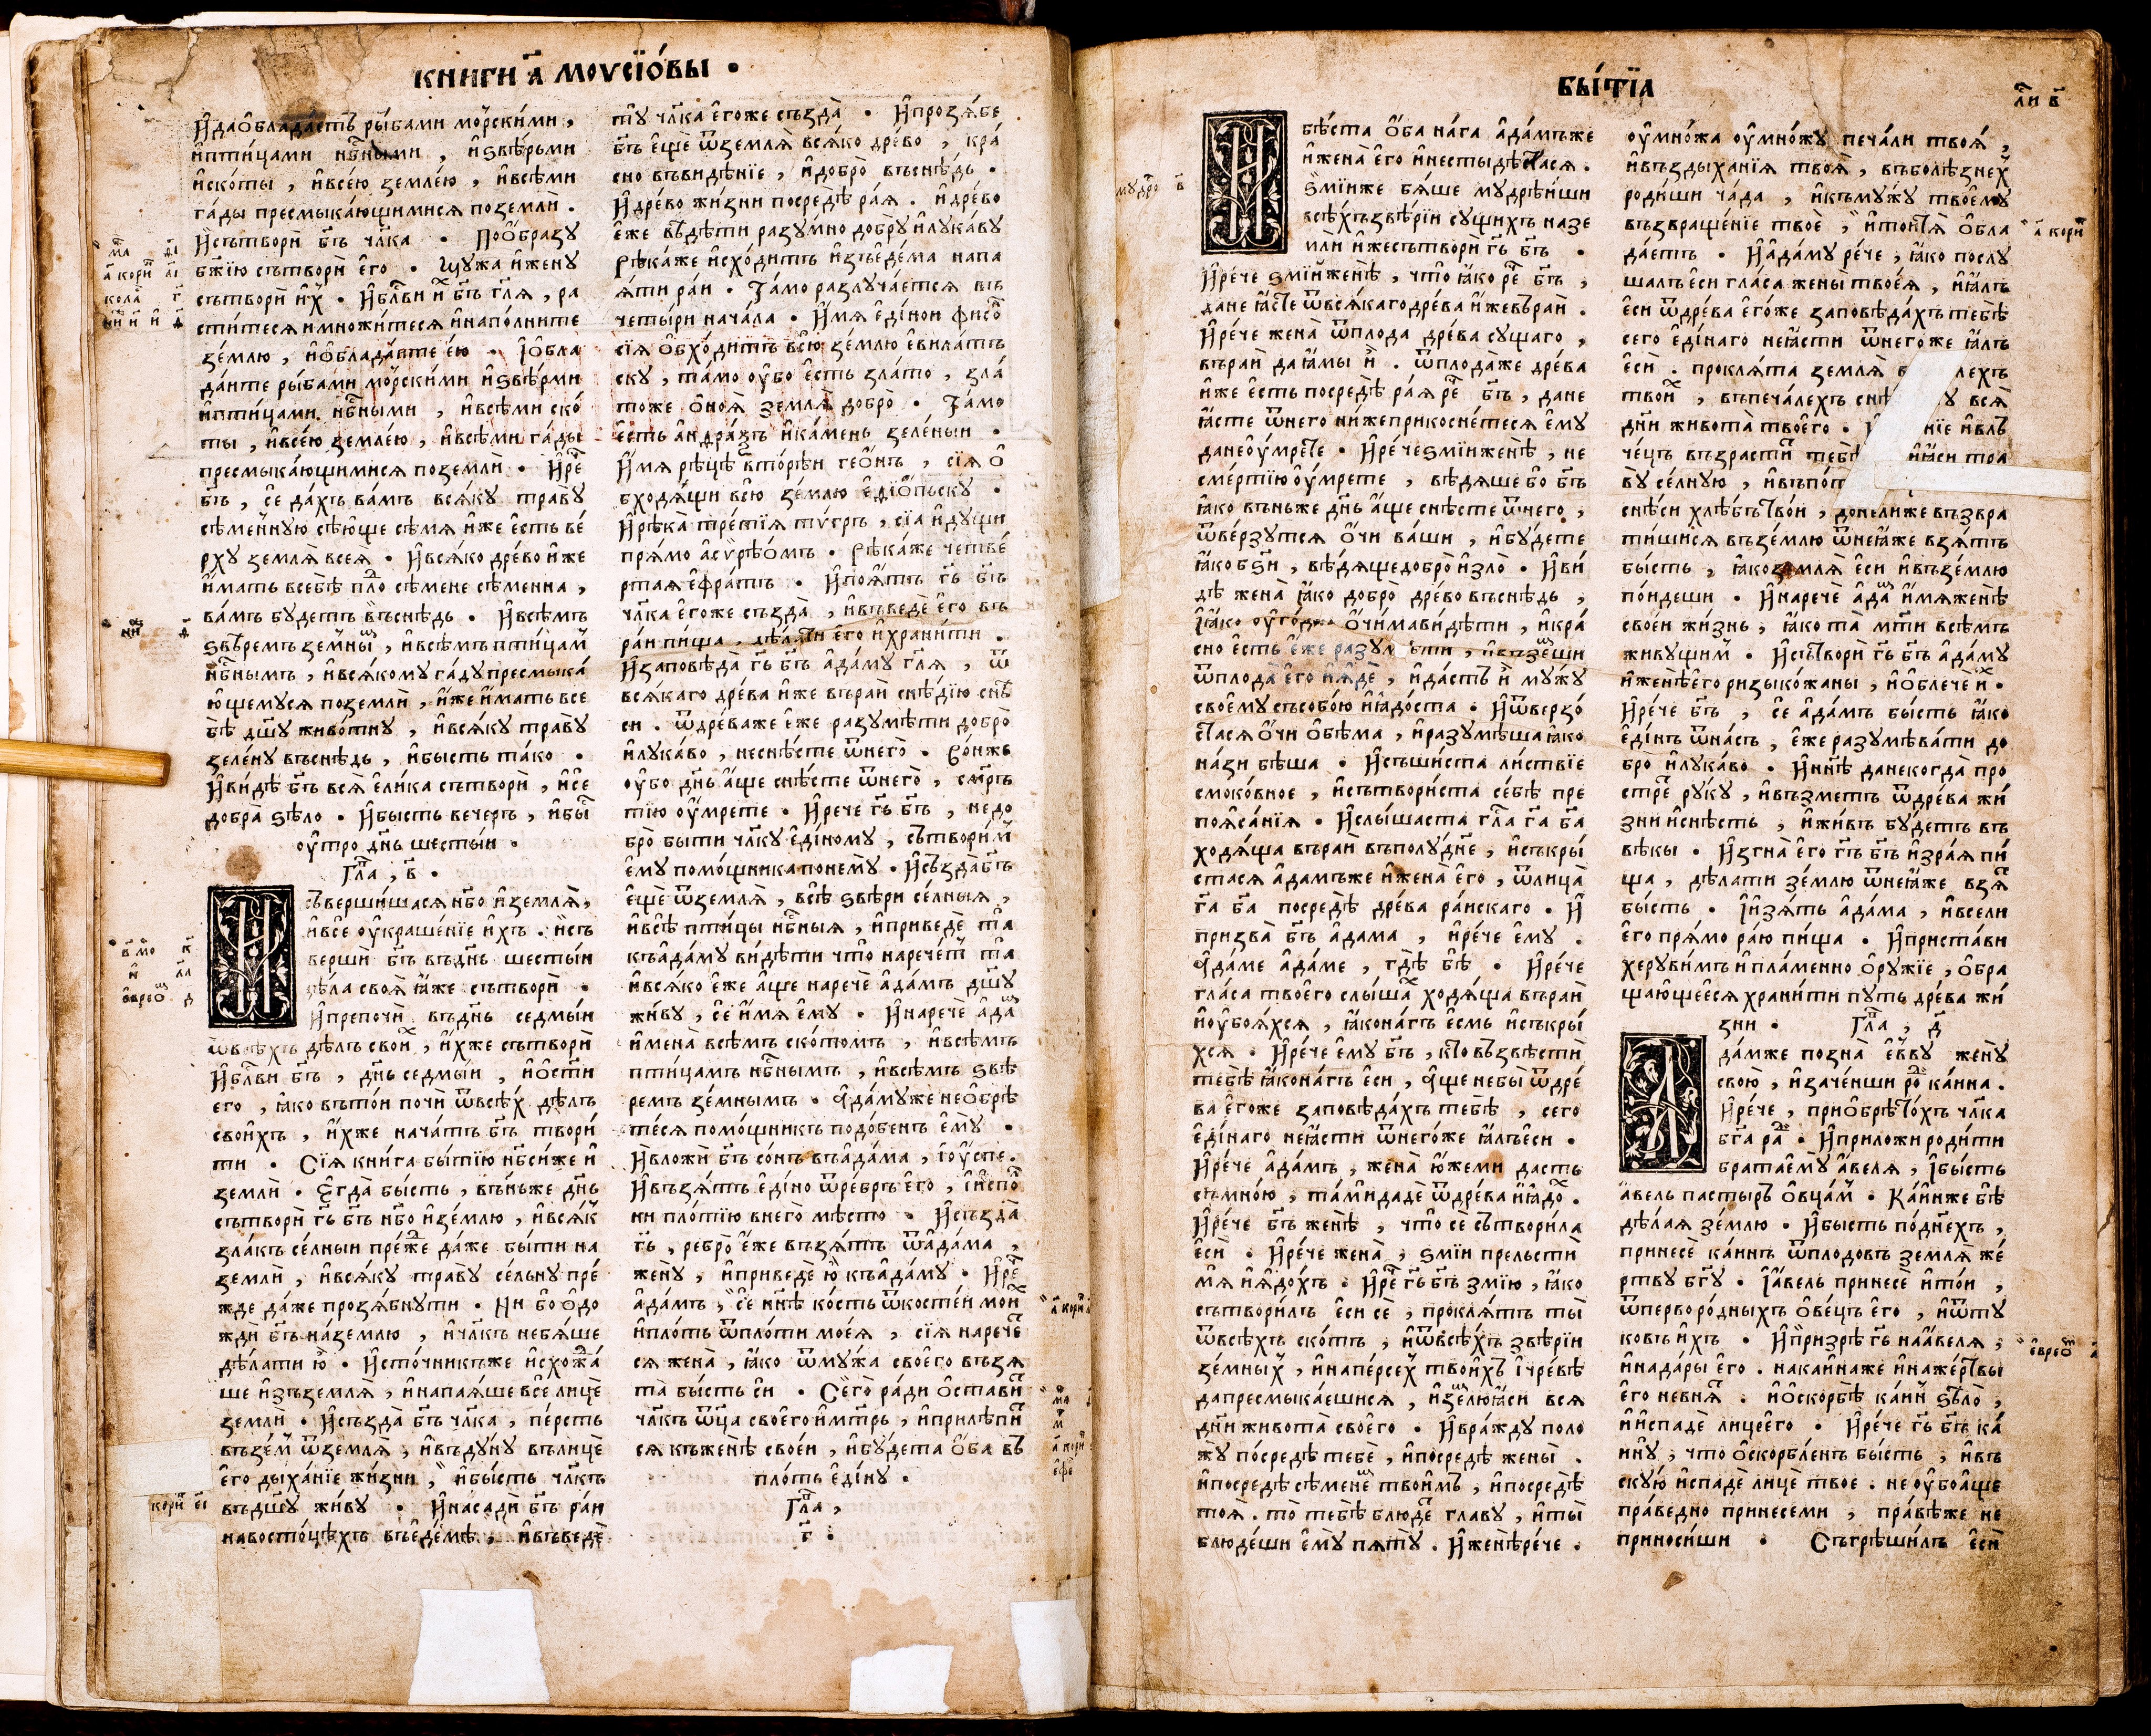 КНИГИ А҃ МОѴСІѺ́ВЫ •
И҆даѻ҆блада́етъ ры́бами мо́рски́ми,
и҆пти́цами нб҃ными, и҆ѕвѣ́рьми
и҆ско́ты, и҆все́ю земле́ю, и҆всѣ́ми
га́ды пресмыка́ющимися поземлѝ.
И҆сътворѝ бг҃ъ чл҃ка • Поѻ҆́бразу
бж҃їю сътворѝ є҆го̀ • му́жа и҆жену̀
сътворѝ и҆̀х • И҆блг҃ви и҆̀х бг҃ъ гл҃я, ра
сти́теся и҆мно́житеся и҆напо́лните
зе́млю, и҆ѻ҆блада́ите е́ю • І҆ѻ҆бла
да́ите ры́бами мо́рски́ми и҆ѕвѣ́рми
и҆пти́цами нб҃ными, и҆всѣ́ми ско́
ты, и҆все́ю земле́ю, и҆всѣ́ми га́ды
пресмыка́ющимися поземлѝ • И҆рече́
бг҃ъ, сѐ да́хъ ва́мъ вся́ку траву̀
сѣ́менную сѣ́юще сѣ́мя и҆́же є҆́сть ве́
рху земля̀ всея̀ • И҆вся́ко дре́во и҆́же
и҆́мать всебѣ̀ пло́д сѣ́мене сѣ́менна,
ва́мъ бу́детъ въснѣ́дь • И҆всѣ́мъ
ѕвѣ́ремъ зе́мным, и҆всѣ́мъ пти́цам
нб҃нымъ, и҆вся́кому га́ду пресмыка́
ющемуся поземлѝ, и҆́же и҆́мать все
бѣ̀ дш҃у живо́тну, и҆вся́ку траву̀
зеле́ну въснѣ́дь, и҆бы́сть та́ко •
И҆ви́дѣ бг҃ъ вся̀ є҆ли́ка сътворѝ, и҆сѐ
добра̀ ѕѣло̀ • И҆бы́сть ве́черъ, и҆бы́с
ᲂу҆́тро дн҃ь шесты́и •
Гла҃, в҃ •
И съверши́шася нб҃о и҆земля̀,
и҆всѐ ᲂу҆краше́нїе и҆́хъ. и҆съ
вершѝ бг҃ъ въдн҃ь шесты́и
дѣ́ла своя̀ ꙗ҆́же сътворѝ •
И҆препочѝ въдн҃ь седмы́и
ѿвсѣ́хъ дѣ́лъ свои҆х, и҆́хже сътворѝ
И҆блг҃ви бг҃ъ, дн҃ь седмы́и, и҆ѻ҆ст҃и
его, ꙗ҆́ко въто́и почѝ ѿвсѣ́х дѣ́лъ
свои́хъ, и҆́хже нача́тъ бг҃ъ твори́
ти • Сїя̀ кни́га бытїю̀ нб҃си́же и҆
землѝ • Є҆гда̀ бы́сть, въ́ньже дн҃ь
сътворѝ гь҃ бг҃ъ нб҃о и҆зе́млю, и҆вся́к
зла́къ се́лныи пре́жде да́же бы́ти на
землѝ, и҆вся́ку траву̀ се́льну пре́
жде да́же прозя́бнути • Ни бо̀ ѻ҆до
ждѝ бг҃ъ на́землю, и҆чл҃къ небя́ше
дѣ́лати ю҆̀ • И҆сто́чникъже и҆схожда́
ше и҆зъземля̀, и҆напая́ше всѐ лицѐ
землѝ • И҆създа̀ бг҃ъ чл҃ка, пе́рсть
възе́м ѿземля̀, и҆въду́ну въли́це
є҆го̀ дыха́нїе жи́зни, и҆бы́сть чл҃къ
въдш҃у жи́ву • И҆насадѝ бг҃ъ ра́и
навосто́цѣхъ въє҆де́мѣ, и҆въведѐ
ту̀ чл҃ка є҆го́же създа̀ • И҆прозя́бе
бг҃ъ є҆щѐ ѿземля̀ вся́ко дре́во, кра́
сно въви́дѣнїе, и҆добро̀ въснѣ́дь •
И҆дре́во жи́зни посредѣ̀ ра́я. и҆дре́во
є҆́же вѣ́дѣти разу́мно добру̀ и҆лука́ву
Рѣка́же и҆схо́дитъ и҆зъє҆де́ма напа
я́ти ра́и • Та́мо разлуча́ется въ
четы́ри нача́ла • И҆́мя є҆ди́нои фисо́н
сїя̀ ѻ҆бхо́дитъ всю̀ зе́млю є҆вила́тъ
ску, та́мо ᲂу҆́бо є҆́сть зла́то, зла́
тоже ѻ҆ноя̀ земля̀ добро̀ • Та́мо
є҆́сть а҆́ндра́ѯъ и҆ка́мень зеле́ныи •
И҆́мя рѣ́цѣ вто́рѣи гео́нъ, сїя̀ ѻ҆
бходя́щи всю̀ зе́млю є҆дїѻ́пьску •
И҆рѣка̀ тре́тїя ти́гръ, сїа̀ и҆ду́щи
пря́мо а҆сѵрѣ́ѻмъ • Рѣка́же четве́
ртая є҆фра́тъ • И҆поя́тъ гь҃ бг҃ъ
чл҃ка є҆го́же създа̀, и҆въведѐ є҆го̀ въ
ра́и пи́ща, дѣ́лати є҆го̀ и҆храни́ти •
И҆заповѣ́да гь҃ бг҃ъ а҆да́му гл҃я, ѿ
вся́каго дре́ва и҆́же въраѝ снѣ́дїю снѣ́
си. ѿдре́важе є҆́же разумѣ́ти добро̀
и҆лука́во, неснѣ́сте ѿнего̀ • Во́ньже
ᲂу҆́бо дн҃ь а҆́ще снѣ́сте ѿнего̀, сме́рть
тїю ᲂу҆́мрете • И҆речѐ гь҃ бг҃ъ, недо
бро̀ бы́ти чл҃ку є҆ди́ному, сътвори́м
є҆му̀ помо́щника поне́му • И҆създа̀ бг҃ъ
є҆щѐ ѿземля̀, всѣ̀ ѕвѣ́ри се́лныя,
и҆всѣ̀ пти́цы нб҃ныя, и҆приведѐ та̀
къа҆да́му ви́дѣти что̀ нарече́т та̀
и҆вся́ко є҆́же а҆́ще наречѐ а҆да́мъ дш҃у
жи́ву, сѐ и҆́мя є҆му̀ • И҆наречѐ а҆да́м
и҆мена̀ всѣ́мъ ско́томъ, и҆всѣ́мъ
пти́цамъ нб҃нымъ, и҆всѣ́мъ ѕвѣ
ремъ зе́мнымъ • А҆да́муже неѻ҆брѣ́
те́ся помо́щникъ подо́бенъ є҆му̀ •
И҆вложѝ бг҃ъ со́нъ въа҆да́ма, і҆ᲂу҆спе.
И҆възя́тъ є҆ди́но ѿре́бръ є҆го̀, и҆и҆спо́л
ни пло́тїю внего̀ мѣ́сто • И҆създа̀
гь҃, ребро̀ є҆́же възя́тъ ѿа҆да́ма,
жену̀, и҆приведѐ ю҆̀ къа҆да́му • И҆речѐ
а҆да́мъ, сѐ нн҃ѣ ко́сть ѿкосте́и мои́х
и҆пло́ть ѿпло́ти моея̀, сїя̀ нарече́т
ся жена̀, ꙗ҆́ко ѿму́жа своего̀ възя
та̀ бы́сть сѝ • Сего̀ ра́ди ѻ҆ста́вит
чл҃къ ѿц҃а своего̀ и҆мт҃рь, и҆прилѣпи́т
ся къженѣ̀ свое́и, и҆бу́дета ѻ҆́ба въ
пло́ть є҆ди́ну •
Гла҃,
г҃ :
БЫ́ТЇА
ли́ в҃
И бѣ́ста ѻ҆́ба на́га а҆да́мъже
и҆жена̀ є҆го̀ и҆нестыдѣ́стася.
Ѕмі́иже бя́ше мудрѣ́иши
всѣ́хъѕвѣ́рїи су́щихъ назе
млѝ и҆́хже сътворѝ гь҃ бг҃ъ •
И҆речѐ ѕмі́и женѣ̀, что̀ ꙗ҆́ко речѐ бг҃ъ,
да́не ꙗ҆́сте ѿвся́каго дре́ва и҆́же въраѝ.
И҆речѐ жена̀ ѿплода̀ дре́ва су́щаго,
въраѝ да ꙗ҆́мы и҆̀. ѿплода́же дре́ва
и҆́же є҆́сть посредѣ̀ ра́я речѐ бг҃ъ, да́не
ꙗ҆́сте ѿнего̀ ни́жеприкоснѣ́теся є҆му̀
да́неᲂу҆́мрете • И҆речѐ ѕмі́и женѣ̀, не
сме́ртїю ᲂу҆́мрете, вѣ́дяше бо̀ бг҃ъ
ꙗ҆́ко въ́ньже дн҃ь а҆́ще снѣ́сте ѿнего̀,
ѿве́рзутся ѻ҆́чи ва́ши, и҆бу́дете
ꙗ҆́ко бѕ҃и, вѣ́дяще добро̀ и҆зло̀ • И҆ви́
дѣ жена̀ ꙗ҆́ко добро̀ дре́во въснѣ́дь,
і҆ꙗ҆́ко ᲂу҆го́дно ѻ҆чи́ма ви́дѣти, и҆кра́
сно є҆́сть є҆́же разумѣ́ти, и҆взе́мши
ѿплода̀ є҆го̀ и҆ꙗ҆дѐ, и҆да́сть и҆̀ му́жу
своему̀ съсобо́ю и҆ꙗ҆до́ста • И҆ѿверзо́
стася ѻ҆́чи ѻ҆бѣ́ма, и҆разумѣ́ша ꙗ҆́ко
на́зи бѣ́ша • И҆съши́ста ли́ствїе
смоко́вное, и҆сътвори́ста себѣ̀ пре
поя́санїя • И҆слы́шаста гла́с га҃ ба҃
ходя́ща въраѝ въполу́дне, и҆съкры́
стася а҆да́мъже и҆жена̀ є҆го̀, ѿлица̀
га҃ ба҃ посредѣ̀ дре́ва ра́искаго • И҆
призва̀ бг҃ъ а҆да́ма, и҆речѐ є҆му̀ •
А҆да́ме а҆да́ме, гдѣ̀ бѣ̀ • И҆речѐ
гла́са твоего̀ слы́шах ходя́ща въраѝ
и҆ᲂу҆боя́хся, ꙗ҆́кона́гъ є҆́смь и҆съкры́
хся • И҆речѐ є҆му̀ бг҃ъ, кто̀ възвѣстѝ
тебѣ̀ ꙗ҆́кона́гъ є҆сѝ, а҆́ще небы̀ ѿдре́
ва є҆го́же заповѣ́дахъ тебѣ̀, сего̀
є҆ди́наго неꙗ҆́сти ѿнего́же ꙗ҆́лъє҆сѝ •
И҆речѐ а҆да́мъ, жена̀ ю҆́жеми да́сть
съмно́ю, та̀ми дадѐ ѿдре́ва и҆ꙗ҆до́х •
И҆речѐ бг҃ъ женѣ̀, что̀ сѐ сътвори́ла
є҆сѝ • И҆речѐ жена̀, ѕмі́и прельстѝ
мя̀ и҆ꙗ҆до́хъ • И҆речѐ гь҃ бг҃ъ змі́ю, ꙗ҆́ко
сътвори́лъ є҆сѝ сѐ, прокля́тъ ты̀
ѿвсѣ́хъ ско́тъ, и҆ѿвсѣ́хъ звѣ́рїи
земны́х, и҆напе́рсех твои́хъ і҆чре́вѣ
да пресмыка́ешися, и҆зе́млю ꙗ҆́си вся̀
дн҃и живота̀ своего̀ • И҆вражду̀ поло
жу̀ посредѣ̀ тебѐ, и҆посредѣ̀ жены̀.
и҆посредѣ̀ сѣ́менем твои́мъ, и҆посредѣ̀
тоя̀. то̀ тебѣ̀ блюде́т главу̀, и҆ты̀
блюде́ши є҆му̀ пяту̀. И҆женѣ̀речѐ •
ᲂу҆мно́жа ᲂу҆мно́жу печа́ли твоя̀,
и҆въздыха́нїя твоя̀, въболѣ́знех
роди́ши ча́да, и҆къму́жу твоему̀
възвраще́нїе твоѐ, и҆то́итя̀ ѻ҆бла
да́етъ • И҆а҆да́му речѐ, ꙗ҆́ко послу́
шалъ є҆сѝ гла́са жены̀ твоея̀, и҆ꙗ҆́лъ
є҆сѝ ѿдре́ва є҆го́же заповѣ́дахъ тебѣ̀
сего̀ є҆ди́наго неꙗ҆́сти ѿнего́же ꙗ҆́лъ
є҆сѝ. прокля́та земля̀ в лехъ
твои́х, въпеча́лехъ снѣ у вся̀
дн҃и живота̀ твоего̀ • нїе и҆влъ
че́цъ възрасти́т тебѣ̀ и҆ꙗ҆́си тра
ву̀ се́лную, и҆въпо́т
снѣ́си хлѣ́бътво́и, до́нелиже възвра
ти́шися възе́млю ѿнеꙗ҆́же взя́тъ
бы́сть, ꙗ҆́ко земля̀ є҆сѝ и҆възе́млю
по́идеши • И҆наречѐ а҆да́м и҆́мя женѣ̀
свое́и жи́знь, ꙗ҆́ко та̀ мт҃и всѣ́мъ
живу́щим • И҆сътворѝ гь҃ бг҃ъ а҆да́му
и҆женѣ̀ є҆го̀ ри́зы ко́жаны, и҆ѻ҆блечѐ и҆̀х •
И҆речѐ бг҃ъ, сѐ а҆да́мъ бы́сть ꙗ҆́ко
є҆ди́нъ ѿна́съ, є҆́же разумѣва́ти до
бро̀ и҆лука́во • И҆нн҃ѣ да́некогда̀ про
стре́т ру́ку, и҆възме́тъ ѿдре́ва жи́
зни и҆снѣ́сть, и҆жи́въ бу́детъ въ
вѣ́кы • И҆згна̀ є҆го̀ гь҃ бг҃ъ и҆зра́я пи́
ща, дѣ́лати зе́млю ѿнеꙗ҆́же взя́т
бы́сть • І҆и҆зя́ть а҆да́ма, и҆вселѝ
є҆го̀ пря́мо ра́ю пи́ща • И҆приста́ви
херуви́мъ и҆пла́менно ѻ҆ру́жїе, ѻ҆бра
ща́ющеєся храни́ти пу́ть дре́ва жи́
зни • Гла҃, д҃
А да́мже позна̀ є҆́ввꙋ жену̀
свою̀, и҆заче́нши родѝ ка́ина.
И҆речѐ, приѻ҆брѣто́хъ чл҃ка
бг҃а ра́ди • И҆приложѝ роди́ти
брата є҆му̀ а҆́веля, і҆бы́сть
а҆́вель па́стырь ѻ҆вца́м • Ка́инже бѣ̀
дѣ́лая зе́млю • И҆бы́сть подн҃ехъ,
принесѐ ка́инъ ѿплодо́въ земля̀ же́
ртву бг҃у • І҆а҆́вель принесѐ и҆то́и,
ѿперворо́дныхъ ѻ҆ве́цъ є҆го̀, и҆ѿту́
ковъ и҆́хъ • И҆призрѣ̀ гь҃ наа҆́веля,
и҆нада́ры є҆го̀. нака́инаже и҆наже́ртвы
є҆го̀ невня́т. и҆ѻ҆скорбѣ̀ ка́ин ѕѣло̀,
и҆и҆спадѐ лицеє҆го̀ • И҆речѐ гь҃ бг҃ъ ка́
ину, что̀ ѻ҆скорбле́нъ бы́сть, и҆въ
ску́ю и҆спадѐ лицѐ твоѐ. не ᲂу҆боа҆́ще
пра́ведно принесе́ми, пра́вѣже не
приноси́ши • Съгрѣши́лъ є҆сѝ